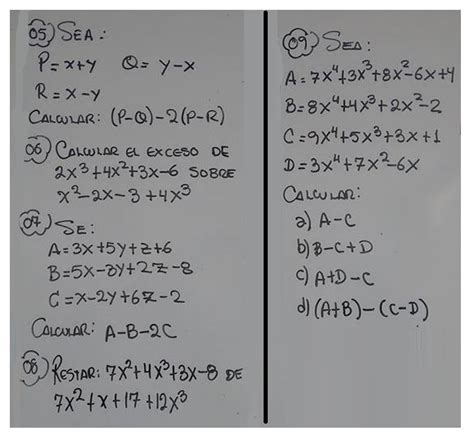 05) SEA:
P= x+y Q= y-x
R = x-y
CALCULAR: (P-Q)-2(P-R)
06) CALCULAR EL EXCESO DE
2x³+4x²+3x-6 SOBRE
x²-2x-3+4x³
07) SE:
A=3x+5y+z+6
B=5x-3y+2z-8
C=x-2y+6z-2
CALCULAR: A-B-2C
08) RESTAR: 7x²+4x³+3x-8 DE
7x²+x+17+12x³
09) SEA:
A=7x⁴+3x³+8x²-6x+4
B=8x⁴+4x³+2x²-2
C=9x⁴+5x³+3x+1
D=3x⁴+7x²-6x
CALCULAR:
a) A-C
b) B-C+D
c) A+D-C
d) (A+B)-(C-D)